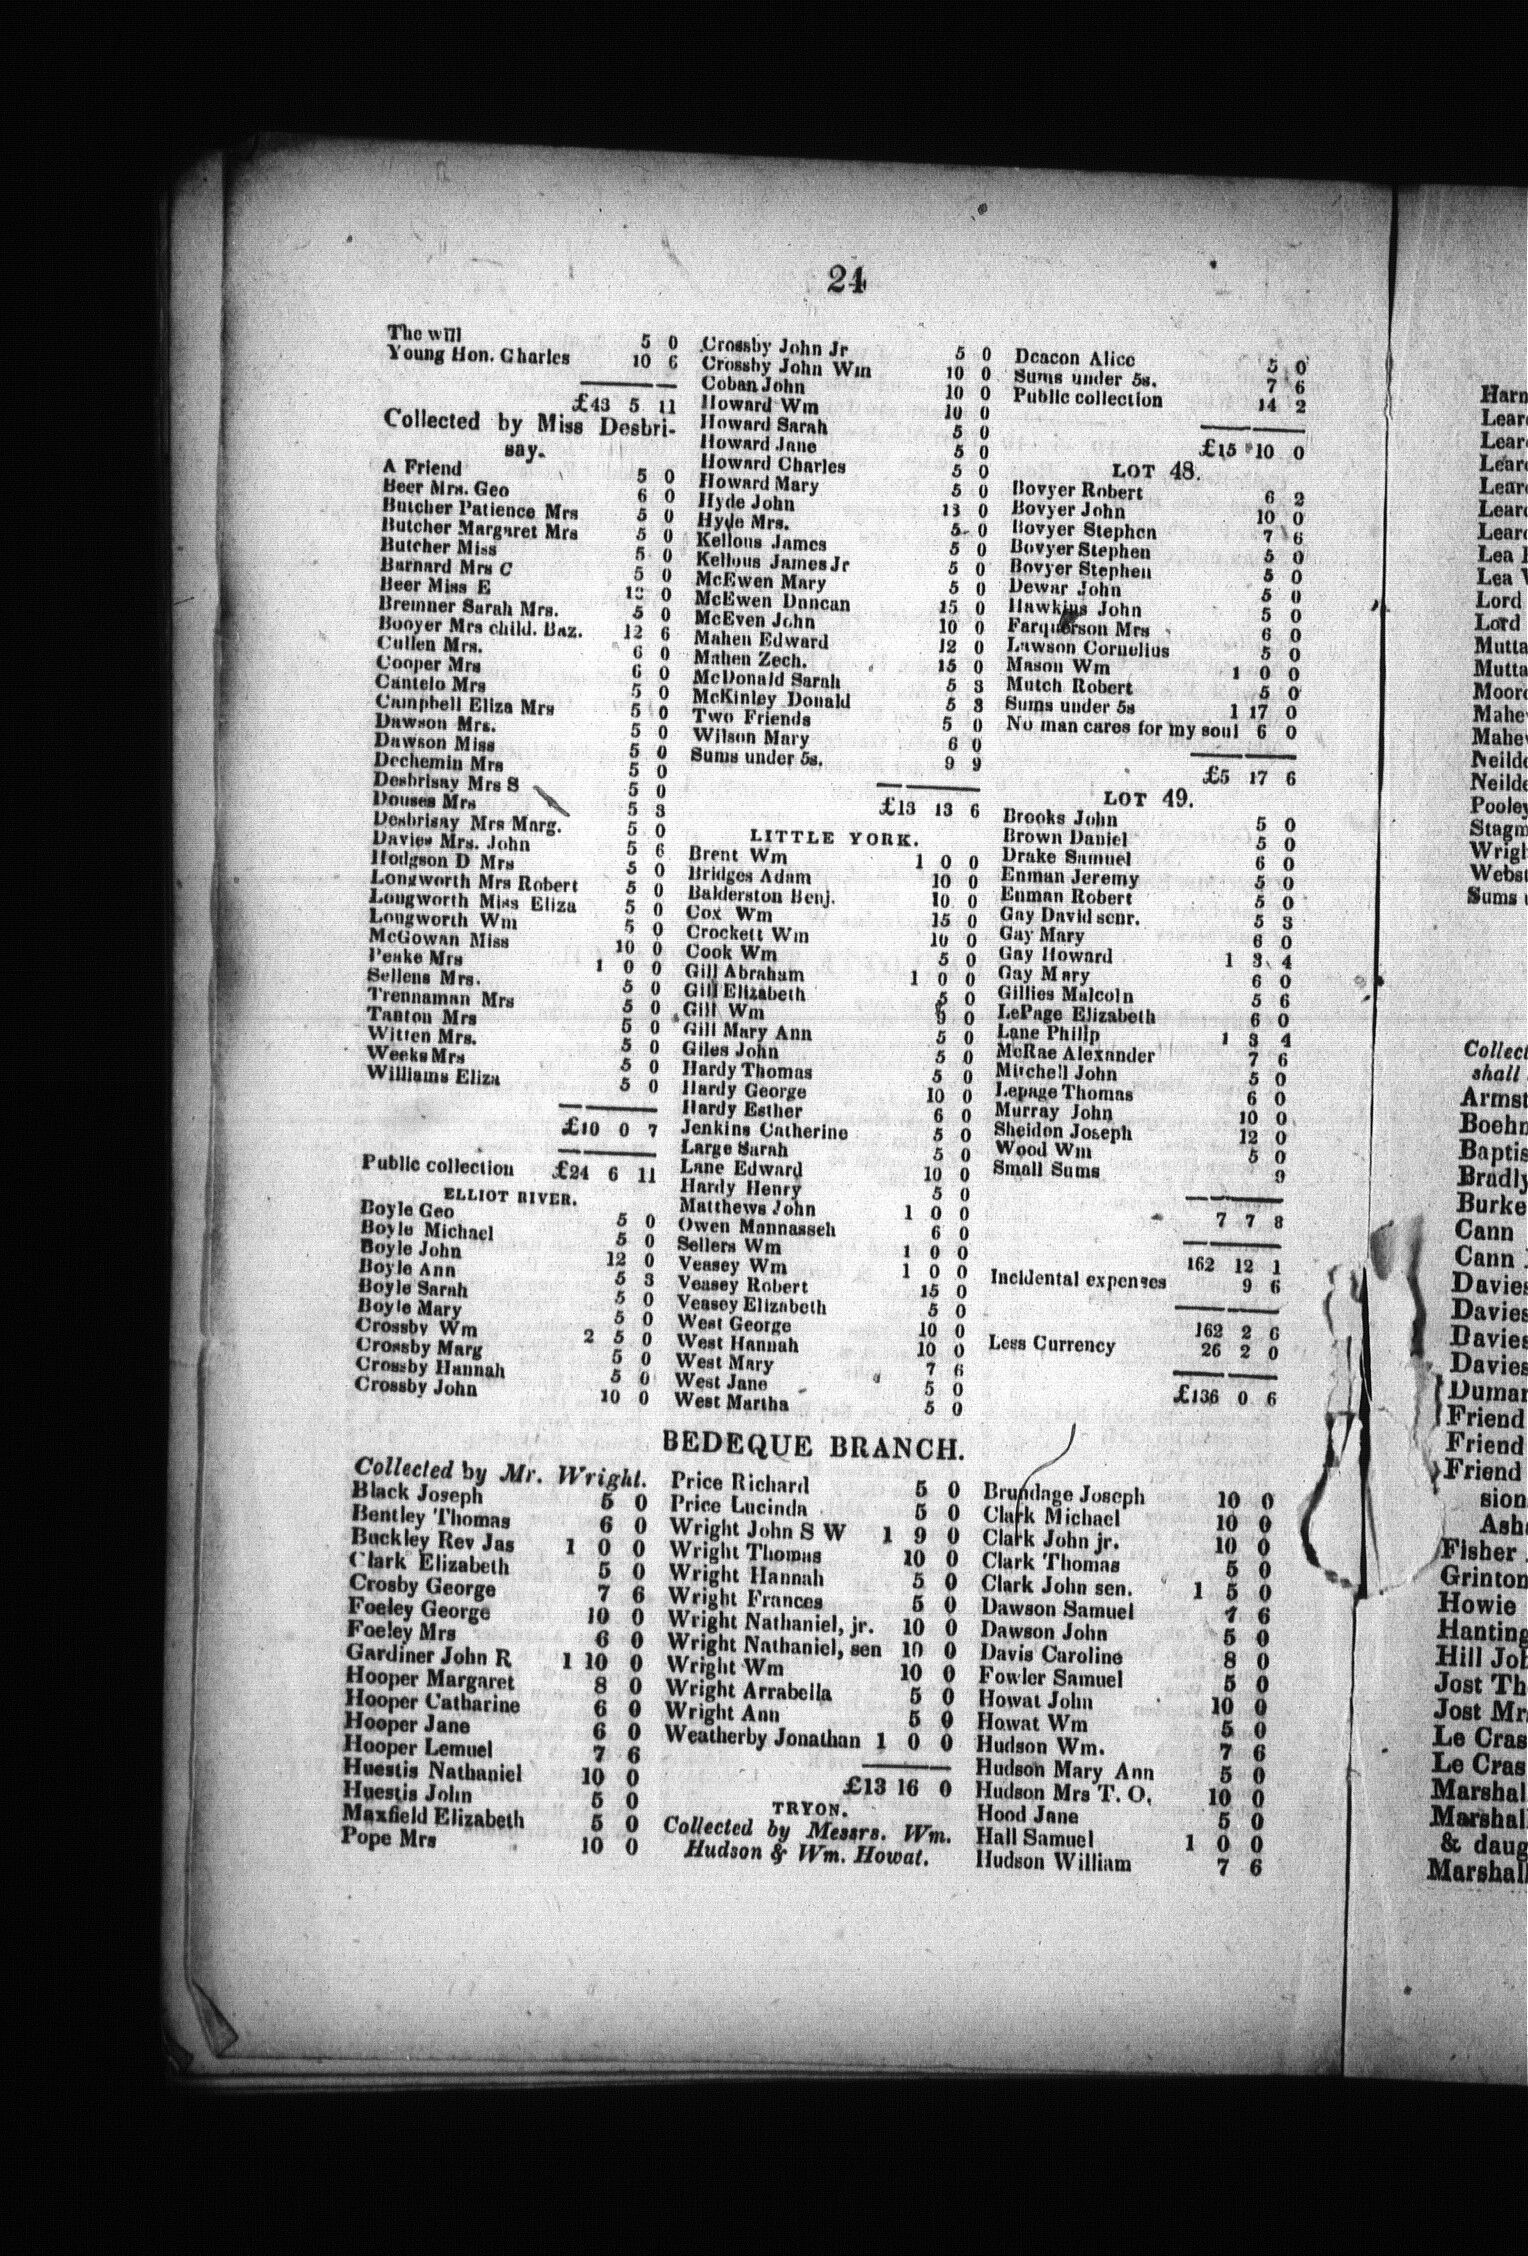 24
The will 5 0
Young Hon. Charles 10 6
£43 5 11
Collected by Miss Desbri-
say.
A Friend 5 0
Beer Mrs. Geo 6 0
Butcher Patience Mrs 5 0
Butcher Margaret Mrs 5 0
Butcher Miss 5 0
Barnard Mrs C 5 0
Beer Miss E 0
Bremner Sarah Mrs. 5 0
Booyer Mrs child. Baz. 12 6
Cullen Mrs. 6 0
Cooper Mrs 6 0
Cantelo Mrs 5 0
Camphell Eliza Mrs 5 0
Dawson Mrs. 5 0
Dawson Miss 5 0
Dechemin Mrs 5 0
Desbrisay Mrs S 5 0
Douses Mrs 5 3
Desbrisay Mrs Marg. 5 0
Davies Mrs. John 5 6
Hodgson D Mrs 5 0
Longworth Mrs Robert 5 0
Longworth Miss Eliza 5 0
Longworth Wm 5 0
McGowan Miss 10 0
Peake Mrs 1 0 0
Sellens Mrs. 5 0
Trennaman Mrs 5 0
Tanton Mrs 5 0
Witten Mrs. 5 0
Weeks Mrs 5 0
Williams Eliza 5 0
£10 0 7
Public collection £24 6 11
ELLIOT RIVER.
Boyle Geo 5 0
Boyle Michael 5 0
Boyle John 12 0
Boyle Ann 5 3
Boyle Sarah 5 0
Boyle Mary 5 0
Crossby Wm 2 5 0
Crossby Marg 5 0
Crossby Hannah 5 0
Crossby John 10 0
Crossby John Jr 5 0
Crossby John Wm 10 0
Coban John 10 0
Howard Wm 10 0
Howard Sarah 5 0
Howard Jane 5 0
Howard Charles 5 0
Howard Mary 5 0
Hyde John 13 0
Hyde Mrs. 5 0
Kellous James 5 0
Kellous James Jr 5 0
McEwen Mary 5 0
McEwen Duncan 15 0
McEven John 10 0
Mahen Edward 12 0
Mahen Zech. 15 0
McDonald Sarah 5 3
McKinley Donald 5 3
Two Friends 5 0
Wilson Mary 6 0
Sums under 5s. 9 9
£13 13 6
LITTLE YORK.
Brent Wm 1 0 0
Bridges Adam 10 0
Balderston Benj. 10 0
Cox Wm 15 0
Crockett Wm 10 0
Cook Wm 5 0
Gill Abraham 1 0 0
Gill Elizabeth 5 0
Gill Wm 0
Gill Mary Ann 5 0
Giles John 5 0
Hardy Thomas 5 0
Hardy George 10 0
Hardy Esther 6 0
Jenkins Catherine 5 0
Large Sarah 5 0
Lane Edward 10 0
Hardy Henry 5 0
Matthews John 1 0 0
Owen Mannasseh 6 0
Sellers Wm 1 0 0
Veasey Wm 1 0 0
Veasey Robert 15 0
Veasey Elizabeth 5 0
West George 10 0
West Hannah 10 0
West Mary 7 6
West Jane 5 0
West Martha 5 0
Deacon Alice 5 0
Sums under 5s. 7 6
Public collection 14 2
£15 10 0
LOT 48.
Bovyer Robert 6 2
Bovyer John 10 0
Bovyer Stephen 7 6
Bovyer Stephen 5 0
Bovyer Stephen 5 0
Dewar John 5 0
Hawkins John 5 0
Farquerson Mrs 6 0
Lawson Cornelius 5 0
Mason Wm 1 0 0
Mutch Robert 5 0
Sums under 5s 1 17 0
No man cares for my soul 6 0
£5 17 6
LOT 49.
Brooks John 5 0
Brown Daniel 5 0
Drake Samuel 6 0
Enman Jeremy 5 0
Enman Robert 5 0
Gay David senr. 5 3
Gay Mary 6 0
Gay Howard 1 3 4
Gay Mary 6 0
Gillies Malcoln 5 6
LePage Elizabeth 6 0
Lane Philip 1 3 4
McRae Alexander 7 6
Mitchell John 5 0
Lepage Thomas 6 0
Murray John 10 0
Sheldon Joseph 12 0
Wood Wm 5 0
Small Sums 9
7 7 8
162 12 1
Incidental expenses 9 6
162 2 6
Less Currency 26 2 0
£136 0 6
BEDEQUE BRANCH.
Collected by Mr. Wright.
Black Joseph 5 0
Bentley Thomas 6 0
Buckley Rev Jas 1 0 0
Clark Elizabeth 5 0
Crosby George 7 6
Foeley George 10 0
Foeley Mrs 6 0
Gardiner John R 1 10 0
Hooper Margaret 8 0
Hooper Catharine 6 0
Hooper Jane 6 0
Hooper Lemuel 7 6
Huestis Nathaniel 10 0
Huestis John 5 0
Maxfield Elizabeth 5 0
Pope Mrs 10 0
Price Richard 5 0
Price Lucinda 5 0
Wright John S W 1 9 0
Wright Thomas 10 0
Wright Hannah 5 0
Wright Frances 5 0
Wright Nathaniel, jr. 10 0
Wright Nathaniel, sen 10 0
Wright Wm 10 0
Wright Arrabella 5 0
Wright Ann 5 0
Weatherby Jonathan 1 0 0
£13 16 0
TRYON.
Collected by Messrs. Wm.
Hudson & Wm. Howat.
Brundage Joseph 10 0
Clark Michael 10 0
Clark John jr. 10 0
Clark Thomas 5 0
Clark John sen. 1 5 0
Dawson Samuel 7 6
Dawson John 5 0
Davis Caroline 8 0
Fowler Samuel 5 0
Howat John 10 0
Howat Wm 5 0
Hudson Wm. 7 6
Hudson Mary Ann 5 0
Hudson Mrs T. O. 10 0
Hood Jane 5 0
Hall Samuel 1 0 0
Hudson William 7 6
Lea
Lord
Lord
Collect
shall
Burke
Cann
Cann
Davies
Davies
Davies
Davies
Friend
Friend
Friend
sion
Fisher
Grinton
Howie
Hill
Jost
Jost
Le Cras
Le Cras
& daug
Marshall